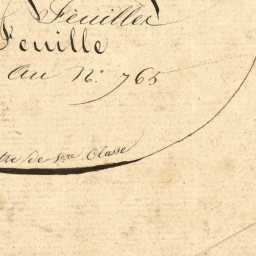 Feuilles
Feuille
Au N.º 765
tre de 1ère Classe